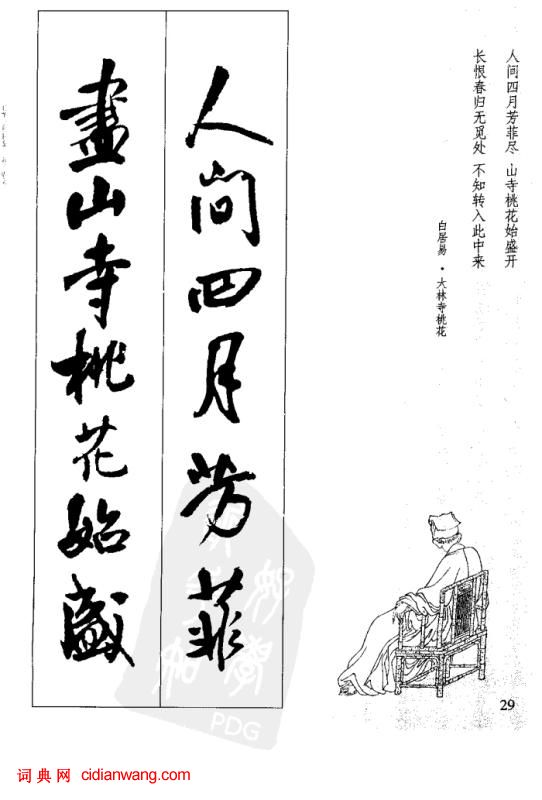 人间四月芳菲尽 山寺桃花始盛开
长恨春归无觅处 不知转入此中来
白居易·大林寺桃花
人间四月芳菲
盡山寺桃花始盛
29
PDG
词典网 cidianwang.com